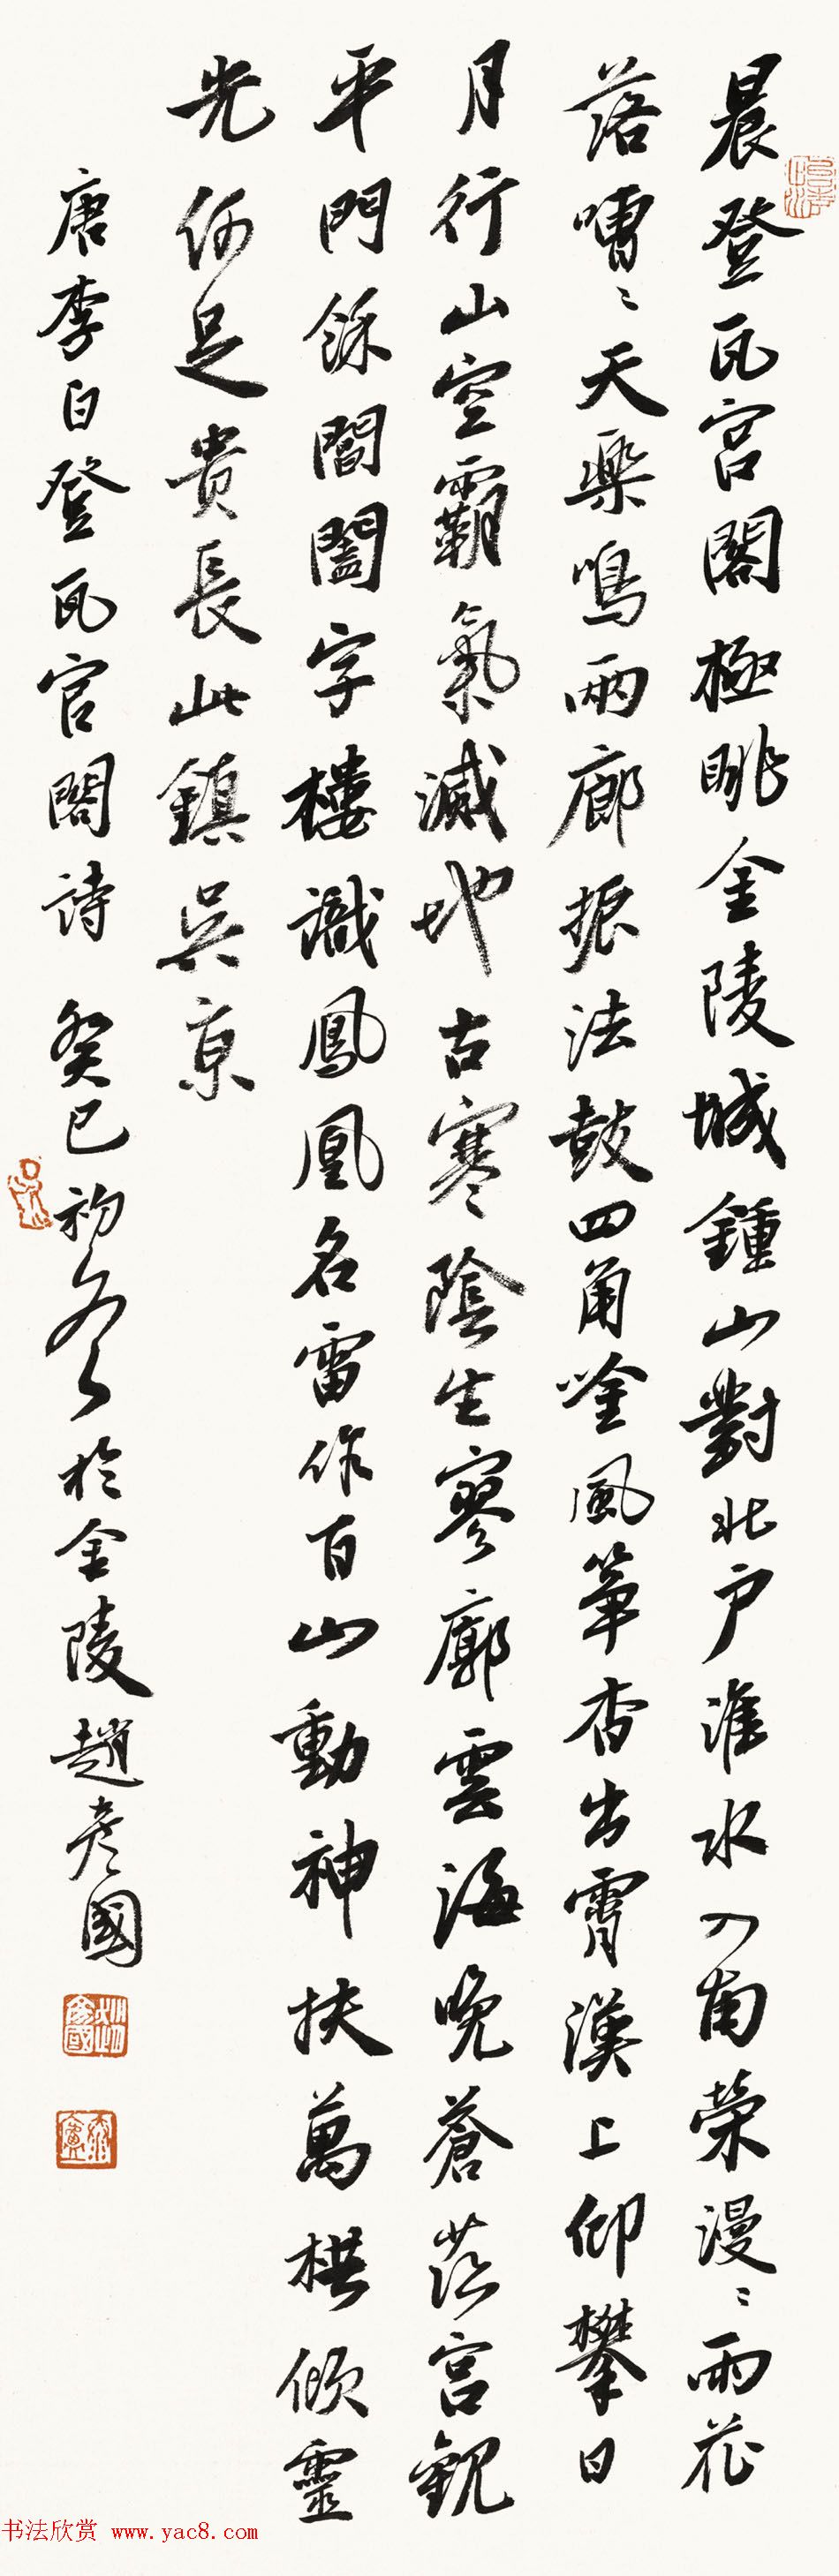 晨登瓦宫閣極眺金陵城鍾山對北户淮水入南榮漫〻雨花
落嘈〻天樂鳴兩廊振法鼓四角唫風箏杳出霄漢上仰攀日
月行山空霸氣滅地古寒陰生寥廓雲海晚蒼茫宫觀
平門餘閶闔字樓識鳳凰名雷作百山動神扶萬栱傾靈
光何足貴長此鎮吳京
唐李白登瓦官閣詩 癸巳初冬於金陵趙彦國
趙彦國
书法欣赏 www.yac8.com